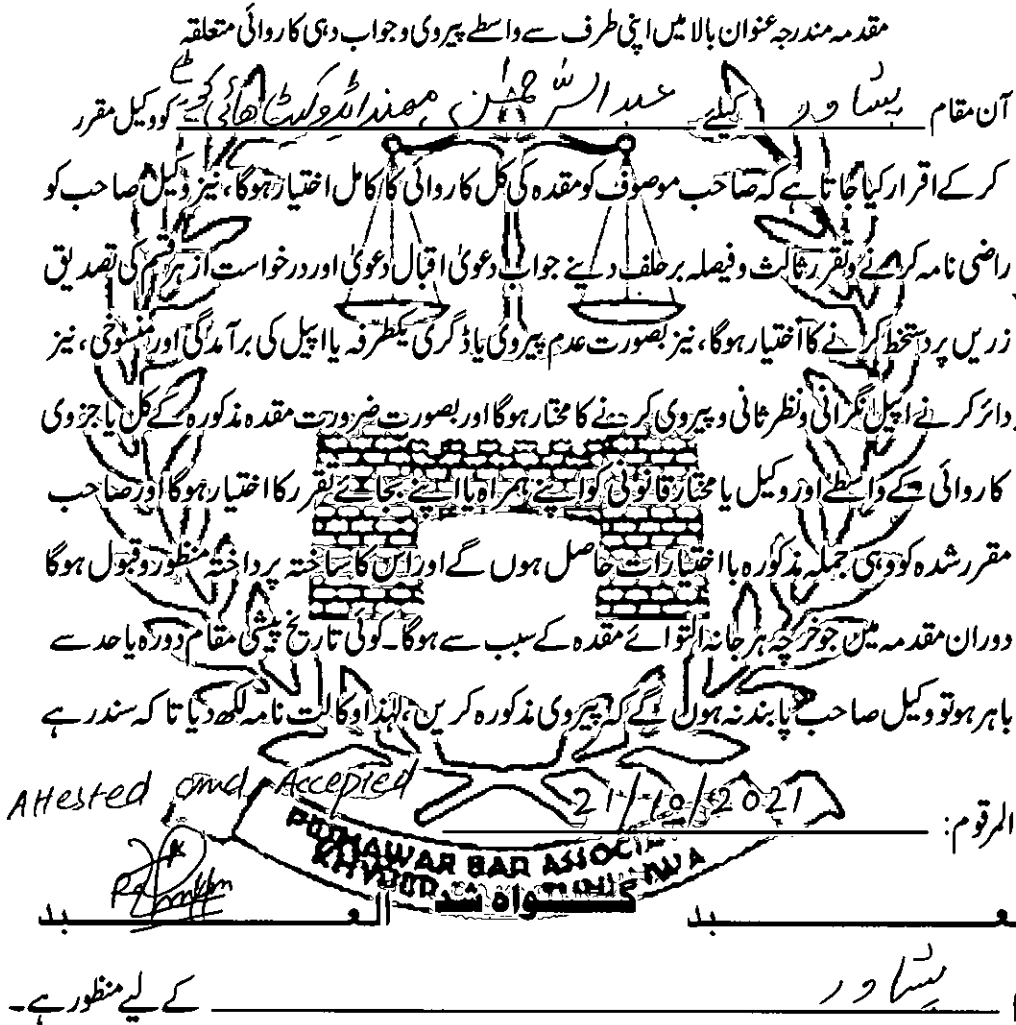 مقدمہ مندرجہ عنوان بالا میں اپنی طرف سے واسطے پیروی و جواب دہی کاروائی متعلقہ
آن مقام پشاور کیلئے عبدالرحمٰن مہمند ایڈوکیٹ ھائی کورٹ کو وکیل مقرر
کر کے اقرار کیا جاتا ہے کہ صاحب موصوف کو مقدہ کی کل کاروائی کا کامل اختیار ہوگا، نیز وکیل صاحب کو
راضی نامہ کرنے وتقرر ثالث و فیصلہ بر حلف دینے جواب دعویٰ اقبال دعویٰ اور درخواست از ہر قسم کی تصدیق
زریں پر دستخط کرنے کا اختیار ہوگا، نیز بصورت عدم پیروی یا ڈگری یکطرفہ یا اپیل کی برآمدگی اور منسوخی، نیز
دائر کرنے اپیل نگرانی و نظر ثانی و پیروی کرنے کا مختار ہوگا اور بصورت ضرورت مقدہ مذکورہ کے کل یا جزوی
کاروائی کے واسطے اور وکیل یا مختار قانونی کو اپنے ہمراہ یا اپنے بجائے تقرر کا اختیار ہوگا اور صاحب
مقرر شدہ کو وہی جملہ مذکورہ با اختیارات حاصل ہوں گے اور اس کا ساختہ پرداختہ منظور و قبول ہوگا
دوران مقدمہ میں جو خرچہ ہر جانہ التوائے مقدہ کے سبب سے ہوگا۔ کوئی تاریخ پیشی مقام دورہ یا حد سے
باہر ہو تو وکیل صاحب پابند نہ ہوں گے کہ پیروی مذکورہ کریں، لہٰذا وکالت نامہ لکھ دیا تا کہ سند رہے
المرقوم: 21/10/2021
Attested and Accepted
PESHAWAR BAR ASSOCI
KHYBER
گـــــواہ شد
العـــــبد
پشاور کے لیے منظور ہے۔